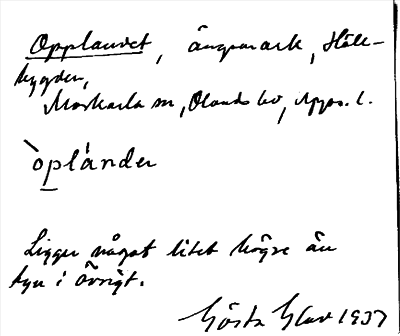 Opplandet, ängsmark, Häll-
bygden,
Morkarla sn, Olands hd, Upps. l.
òplánder
Ligger något litet högre än
byn i övrigt.
Gösta 1937